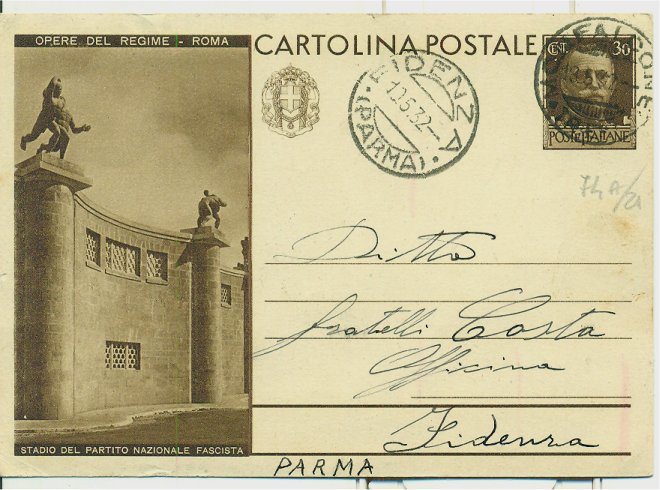 OPERE DEL REGIME - ROMA
CARTOLINA POSTALE
CENT. 30
POSTE ITALIANE
FIDENZA
10.5.32
(PARMA)
Ditta
fratelli Costa
Officina
Fidenza
STADIO DEL PARTITO NAZIONALE FASCISTA
PARMA